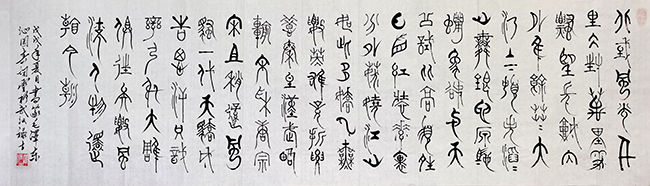 北國風光千
里冰封萬里雪
飄望長城內
外惟餘莽莽大
河上下頓失滔
滔山舞銀蛇原馳
蠟象欲與天
公試比高須晴
日看紅裝素裹
分外妖嬈江
山如此多嬌引無
數英雄競折腰
惜秦皇漢武略
輸文采唐宗
宋祖稍遜風
騷一代天驕成
吉思汗只識
彎弓射大雕
俱往矣數風
流人物還
看今朝
戊戌年夏月書篆毛澤東
沁園春詞